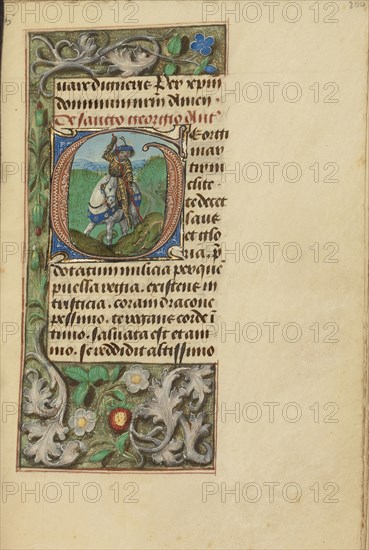 uare digneris Per xpm
dominum nrm Amen
De sancto georgio Ant
Georgi
mar
tir in
clite
te decet
laus
et glo
ria. p
dotatum milicia per que
puella regia. existens in
tristicia. coram dracone
pessimo. te rogamus corde i
timo. saluata est et ani
mo. se reddidit altissimo
PHOTO 12